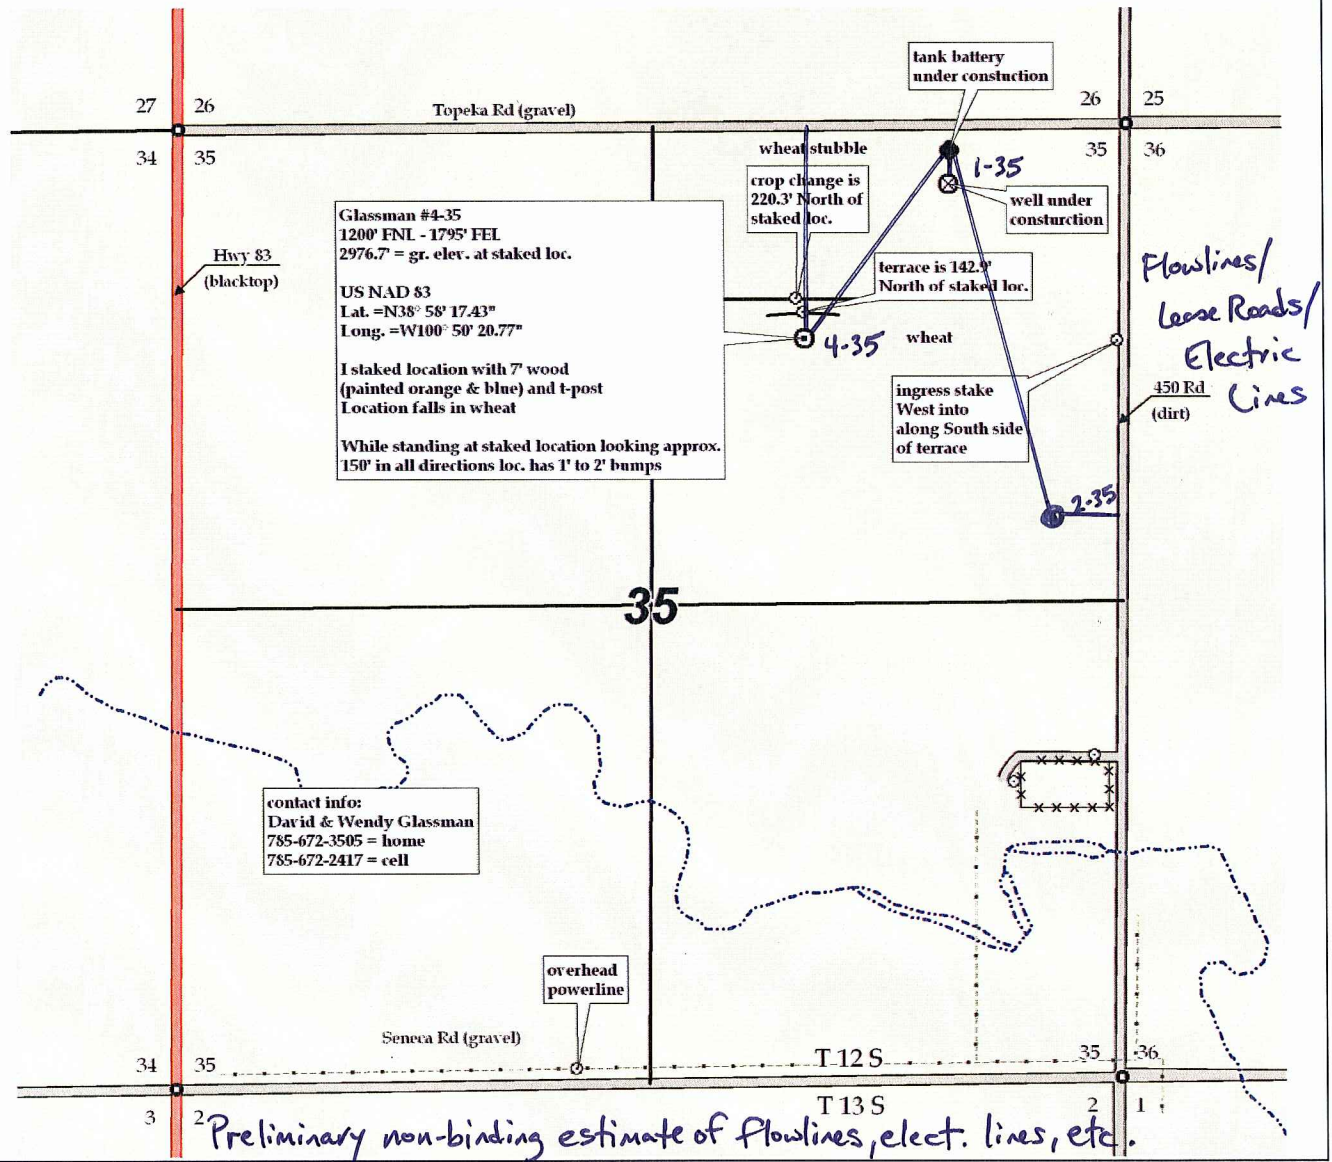 tank battery
under constuction
27
26
Topeka Rd (gravel)
26
25
34
35
wheat stubble
35
36
1-35
crop change is
220.3' North of
staked loc.
well under
consturction
Glassman #4-35
1200' FNL - 1795' FEL
2976.7' = gr. elev. at staked loc.
US NAD 83
Lat. =N38° 58' 17.43"
Long. =W100° 50' 20.77"
I staked location with 7' wood
(painted orange & blue) and t-post
Location falls in wheat
While standing at staked location looking approx.
150' in all directions loc. has 1' to 2' bumps
Hwy 83
(blacktop)
terrace is 142.9'
North of staked loc.
Flowlines/
Lease Roads/
Electric
Lines
4-35
wheat
ingress stake
West into
along South side
of terrace
450 Rd
(dirt)
2-35
35
contact info:
David & Wendy Glassman
785-672-3505 = home
785-672-2417 = cell
overhead
powerline
Seneca Rd (gravel)
34
35
T 12 S
35
36
3
2
T 13 S
2
1
Preliminary non-binding estimate of flowlines, elect. lines, etc.